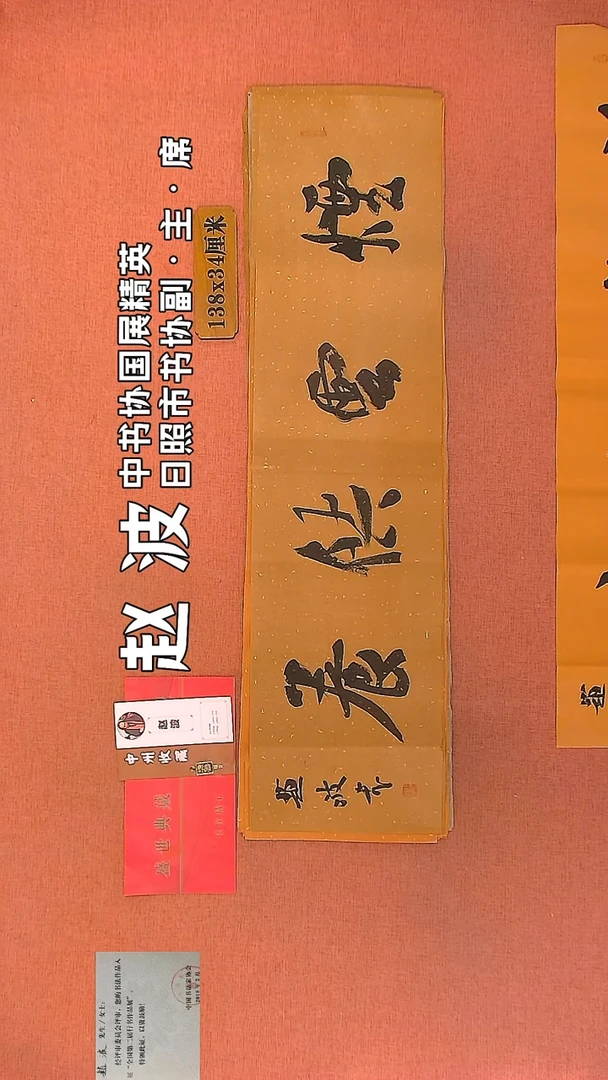 赵 波
中书协国展精英
日照市书协副·主·席
138x34厘米
煙雲供養
趙波书
赵波
中州收藏
盛世典藏
先生/女士:
经评审委员会评审，您的书法作品入
“全国第二届行书作品展”，
特颁此证，以资鼓励!
中国书法家协会